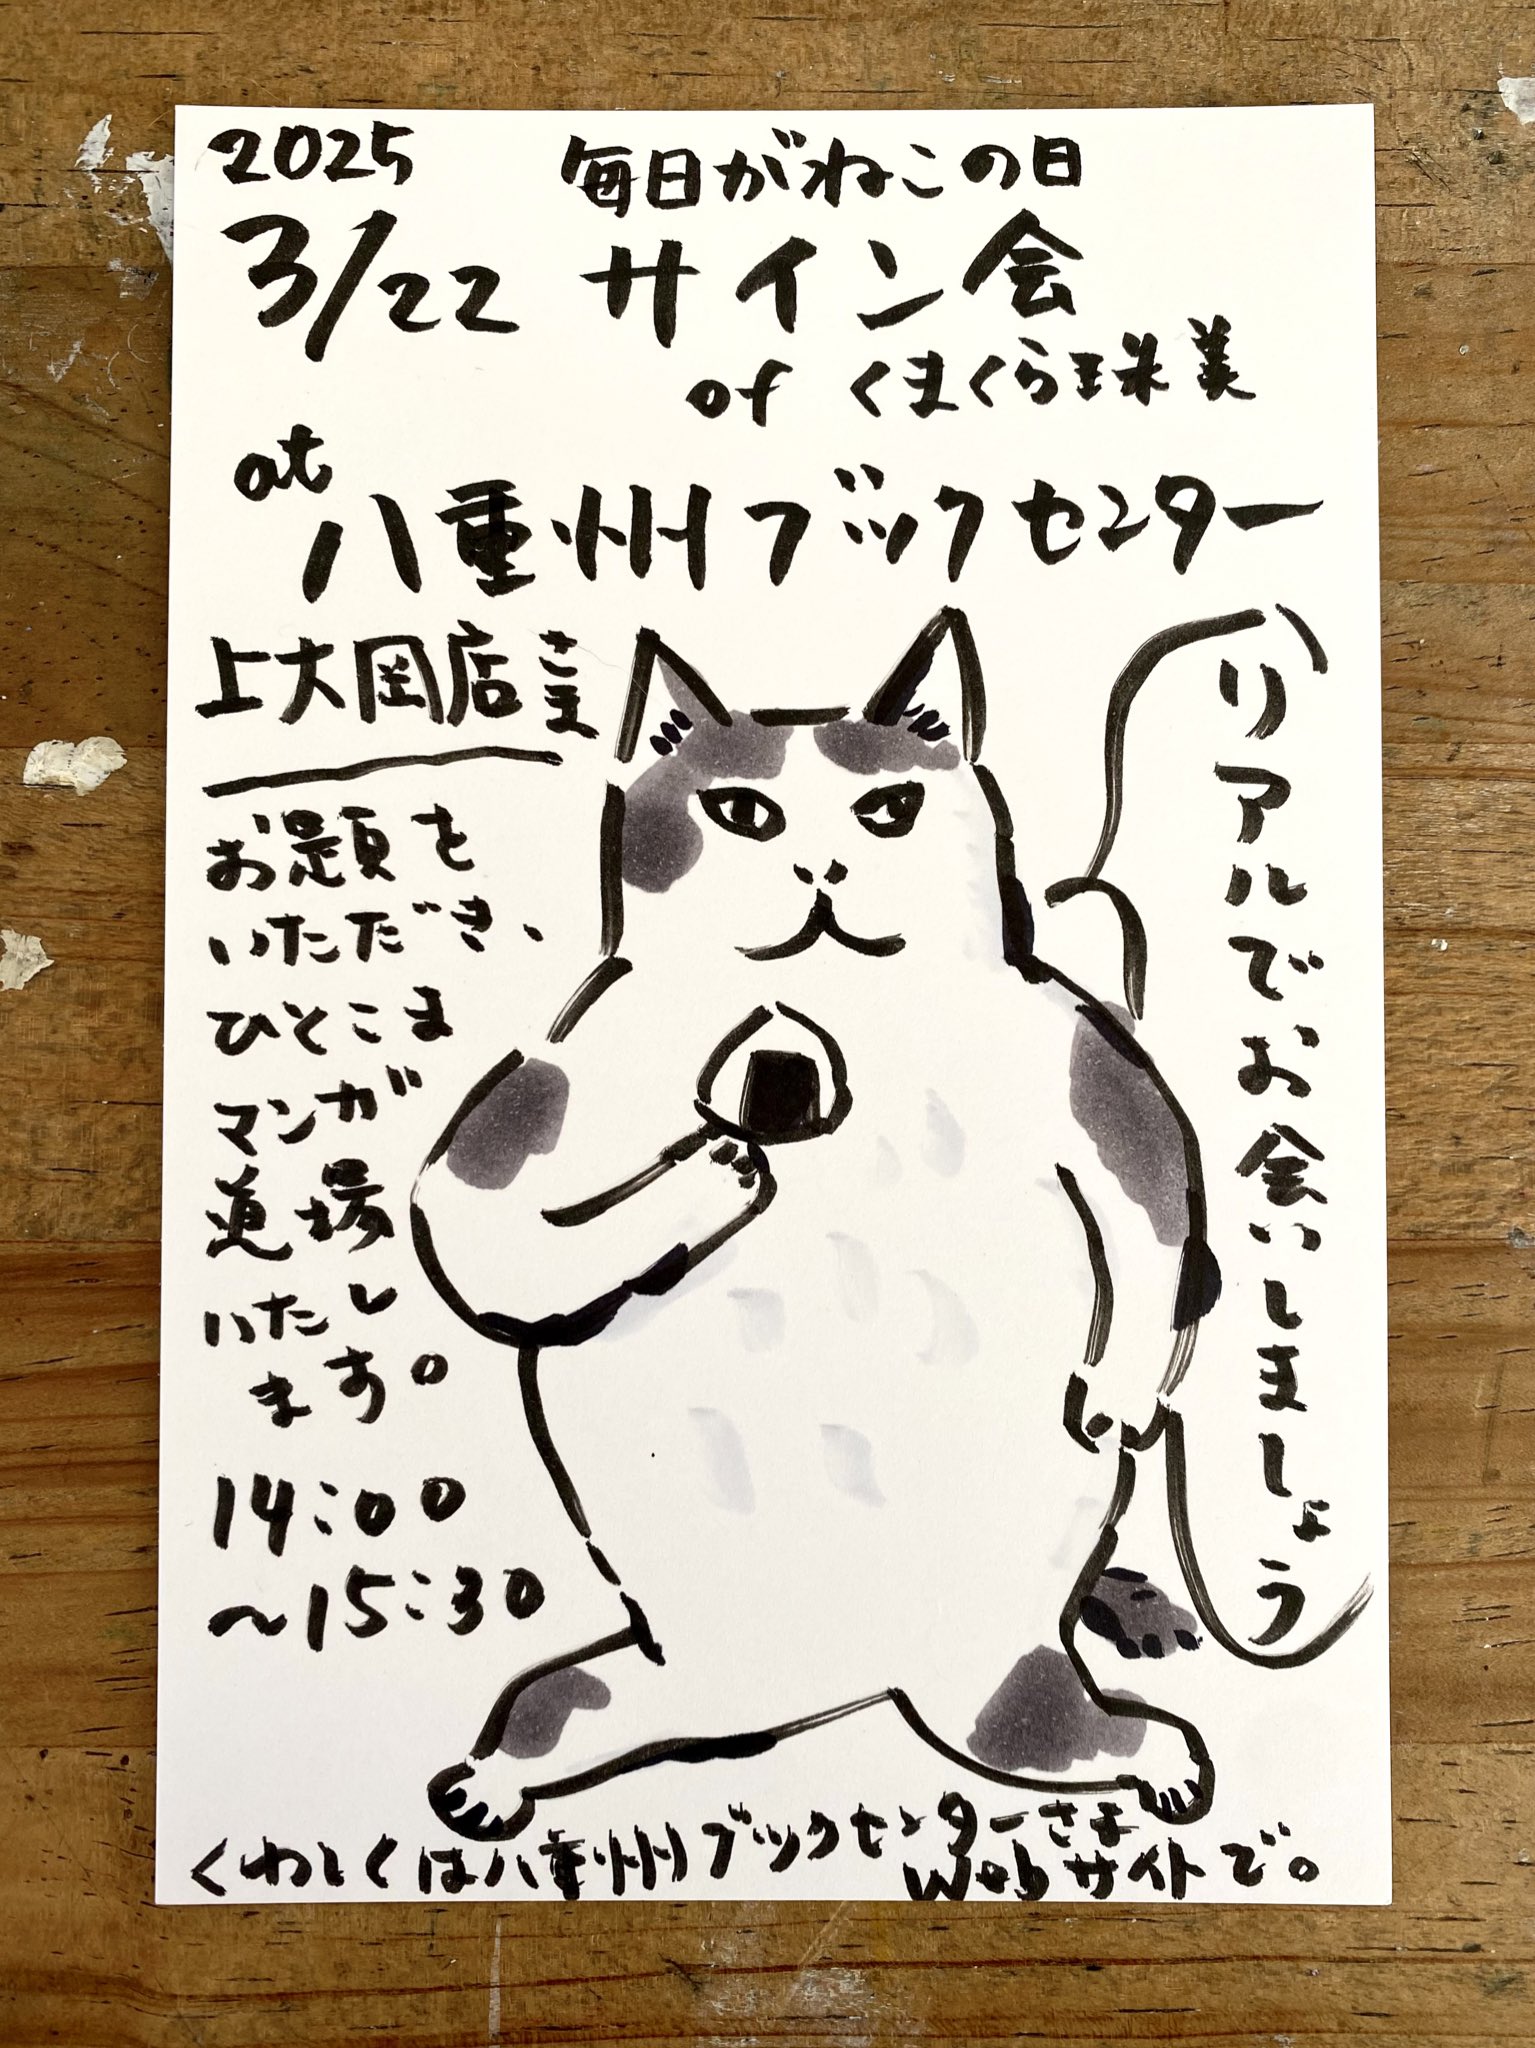 2025
3/22
毎日がねこの日
サイン会
of くまくら珠美
at
八重州ブックセンター
上大岡店さま
お題を
いただき、
ひとこま
マンガ
道場
いたし
ます。
14:00
〜15:30
リアルでお会いしましょう
くわしくは八重州ブックセンターさま
Webサイトで。